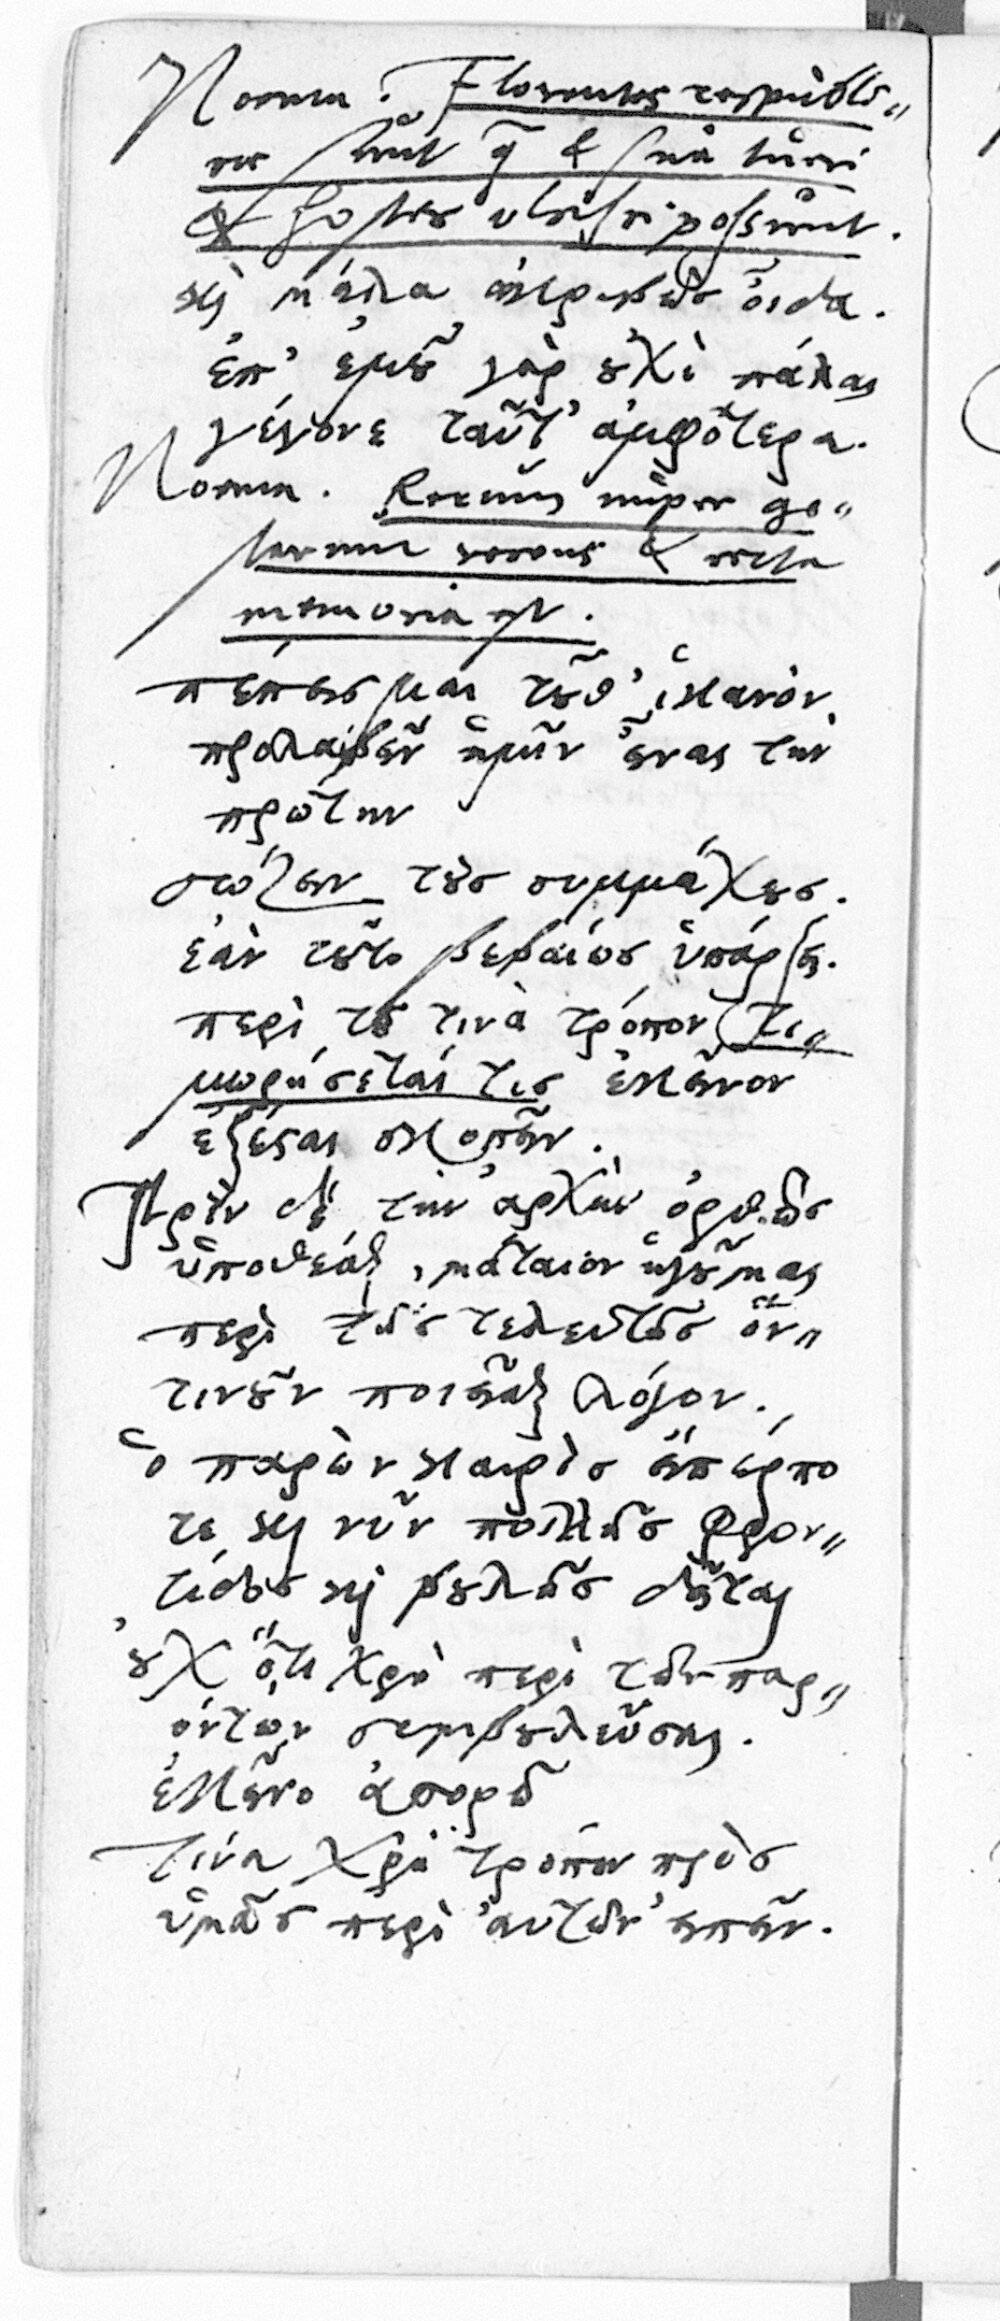 Norma. Florentes respubli„
cae sunt q̃ & sua tueri
& hostes ulcisci possunt.
καὶ μάλα ἀκριβῶς οἶδα.
ἐπ' ἐμοῦ γὰρ οὐχὶ πάλαι
γέγονε ταῦτ' ἀμφότερα.
Norma. Rerum nuper ge„
starum recens & recta
memoria est.
πέπεισμαι τοῦθ' ἱκανὸν
προλαβεῖν ἡμῖν εἶναι τὴν
πρώτην
σώζειν τοὺς συμμάχους.
ἐὰν τοῦτο βεβαίως ὑπάρξῃ.
περὶ τοῦ τινὰ τρόπον τι„
μωρήσεταί τις ἐκεῖνον
ἐξέσται σκοπεῖν.
Πρὶν δὲ τὴν ἀρχὴν ὀρθῶς
ὑποθέσθαι, μάταιον ἡγοῦμαι
περὶ τῆς τελευτῆς ὅν„
τινοῦν ποιεῖσθαι λόγον.
ὁ παρὼν καιρὸς εἴπερ πο
τε καὶ νῦν πολλῆς φρον„
τίδος καὶ βουλῆς δεῖται
οὐχ ὅτι χρὴ περὶ τῶν παρ„
όντων συμβουλεῦσαι.
ἐκεῖνο ἀπορῶ
τίνα χρὴ τρόπον πρὸς
ὑμᾶς περὶ αὐτῶν εἰπεῖν.